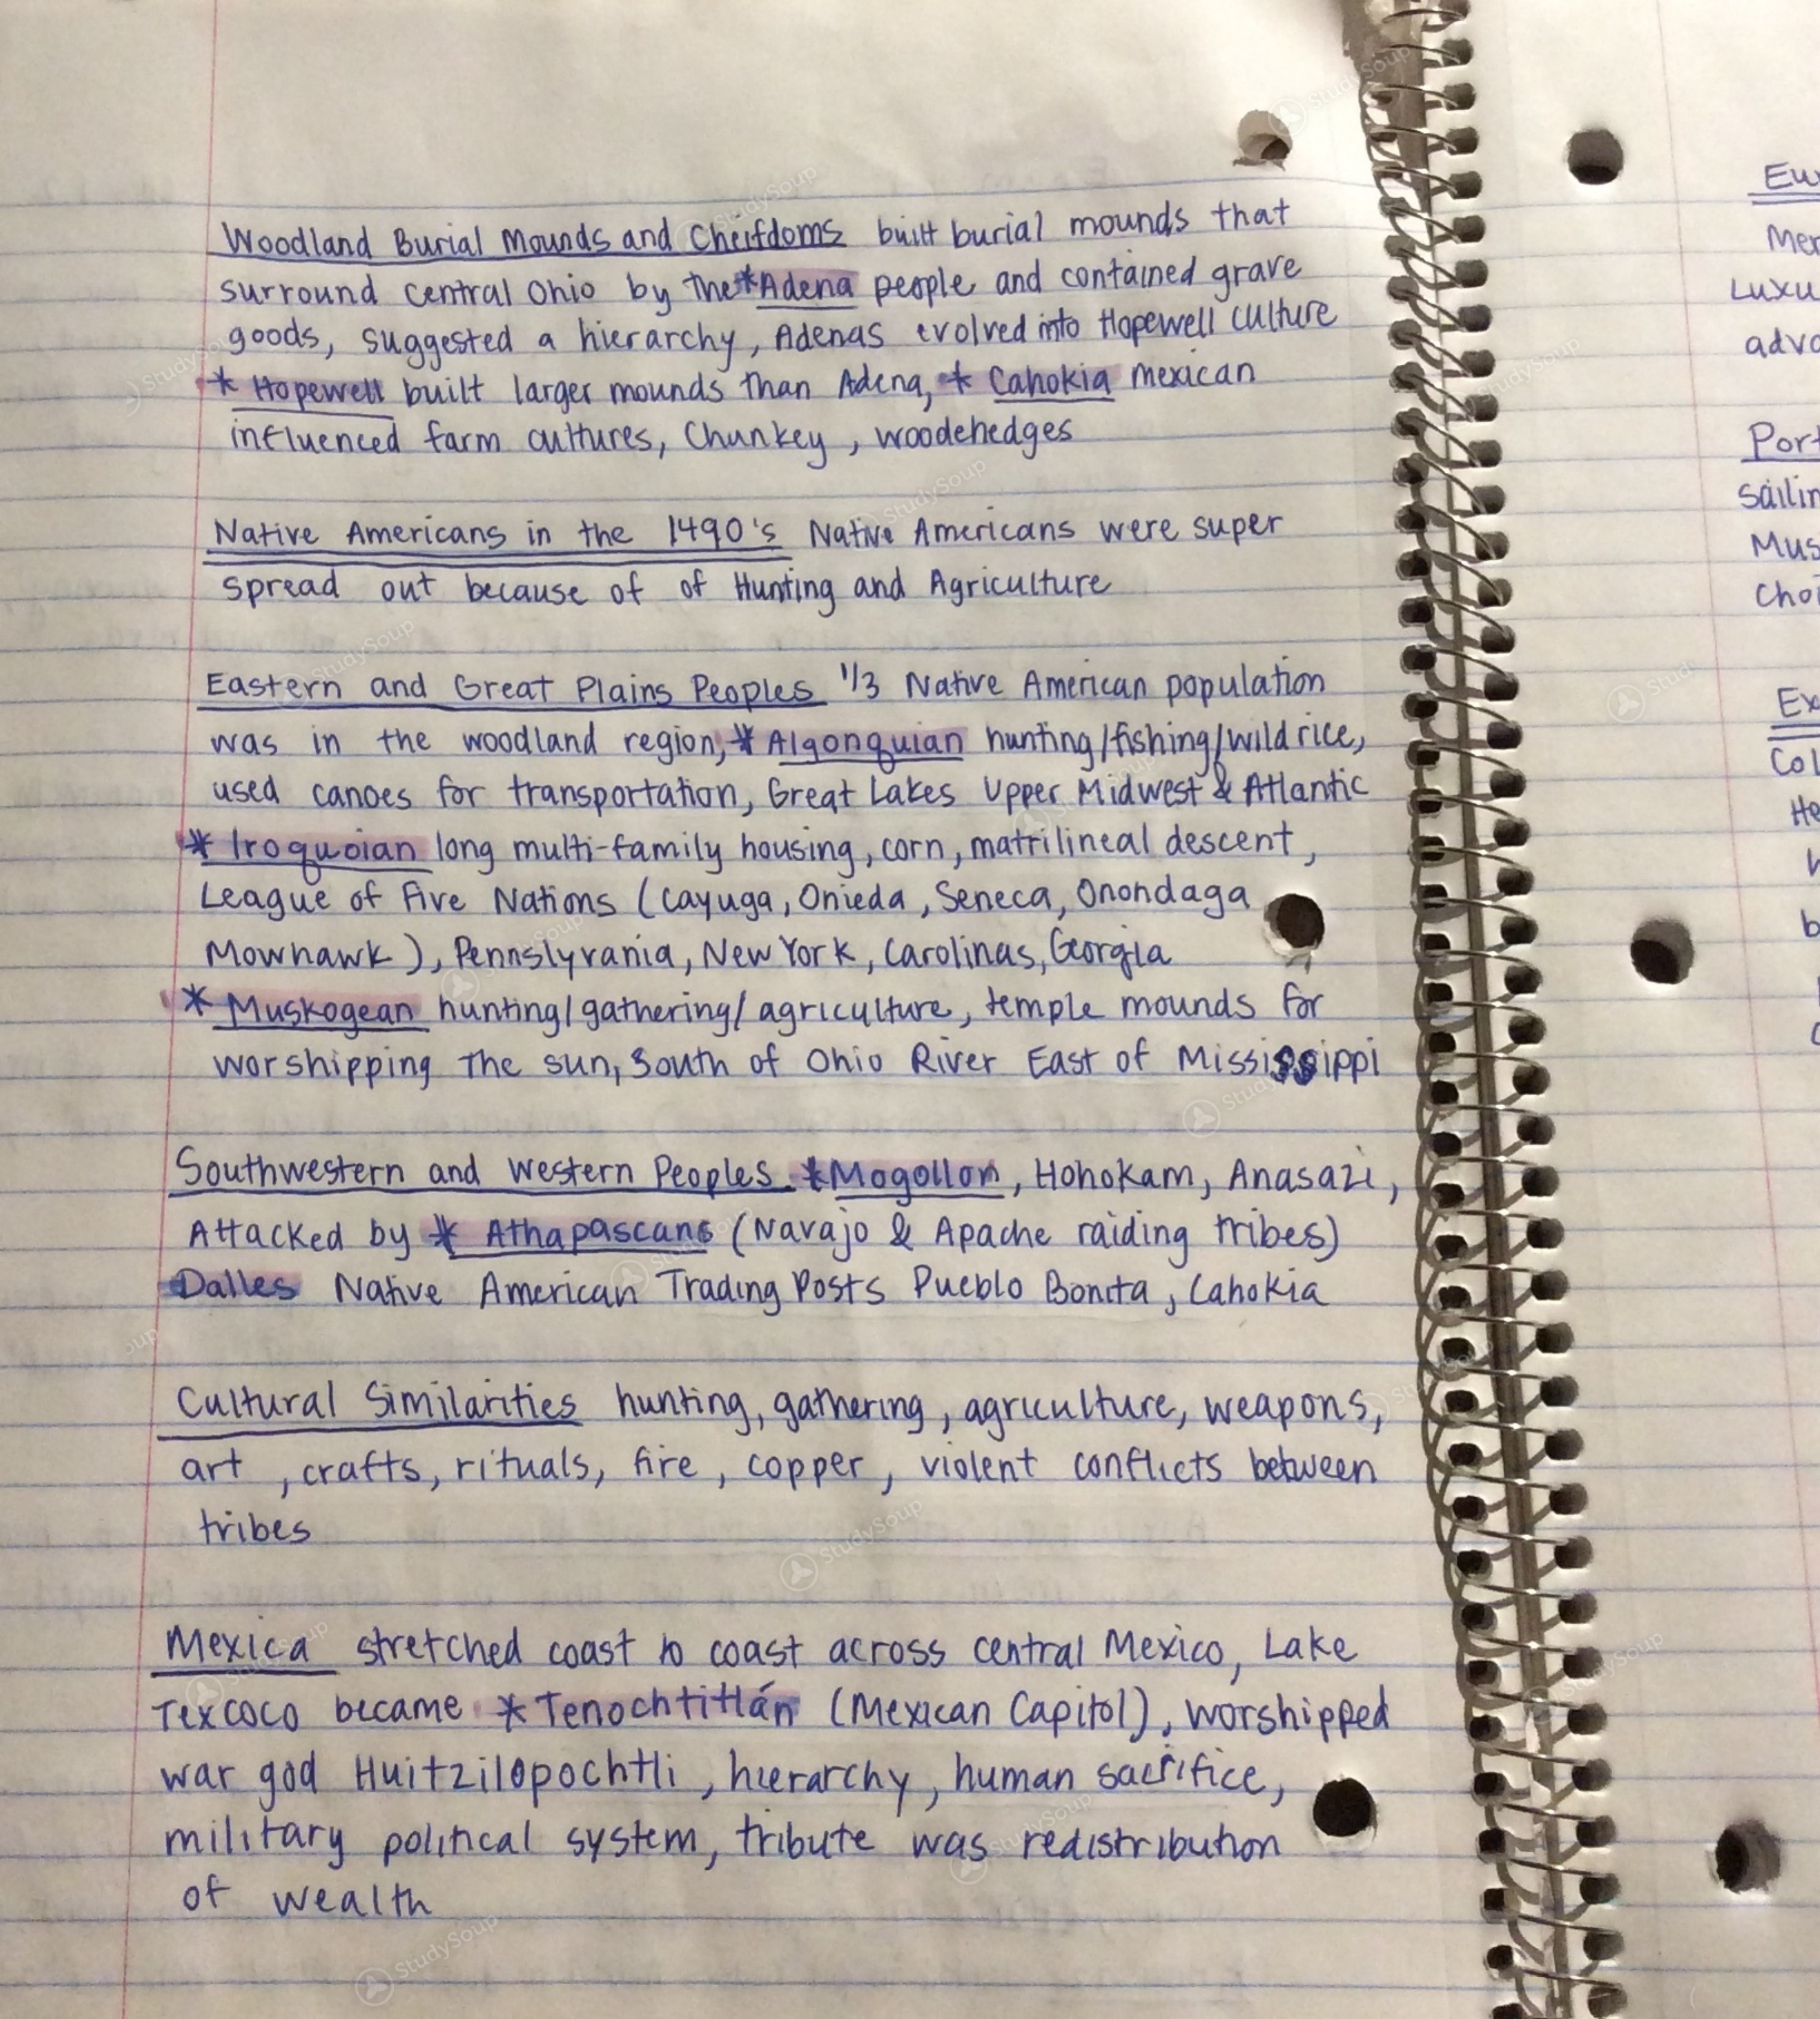 Woodland Burial Mounds and Cheifdoms built burial mounds that
surround central Ohio by the *Adena people and contained grave
goods, suggested a hierarchy, Adenas evolved into Hopewell culture
* Hopewell built larger mounds than Adena, * Cahokia mexican
influenced farm cultures, Chunkey, woodehedges
Native Americans in the 1490's Native Americans were super
spread out because of of Hunting and Agriculture
Eastern and Great Plains Peoples 1/3 Native American population
was in the woodland region, * Algonquian hunting/fishing/wild rice,
used canoes for transportation, Great Lakes Upper Midwest & Atlantic
* Iroquoian long multi-family housing, corn, matrilineal descent,
League of Five Nations (Cayuga, Onieda, Seneca, Onondaga
Mowhawk), Pennslyvania, New York, Carolinas, Georgia
* Muskogean hunting/gathering/agriculture, temple mounds for
worshipping the sun, South of Ohio River East of Mississippi
Southwestern and Western Peoples. *Mogollon, Hohokam, Anasazi,
Attacked by * Athapascans (Navajo & Apache raiding tribes)
Dalles Native American Trading Posts Pueblo Bonita, Cahokia
Cultural Similarities hunting, gathering, agriculture, weapons,
art, crafts, rituals, fire, copper, violent conflicts between
tribes
Mexica stretched coast to coast across central Mexico, Lake
Texcoco became * Tenochtitlán (Mexican Capitol), worshipped
war god Huitzilopochtli, hierarchy, human sacrifice,
military political system, tribute was redistribution
of wealth
Eu
Mer
Luxu
adva
Port
Sailin
Mus
Choi
Ex
Col
He
b
StudySoup